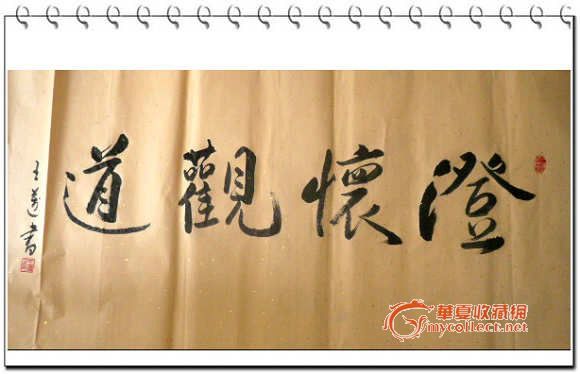 澄懷觀道
王蘧書
華夏收藏網
mycollect.net